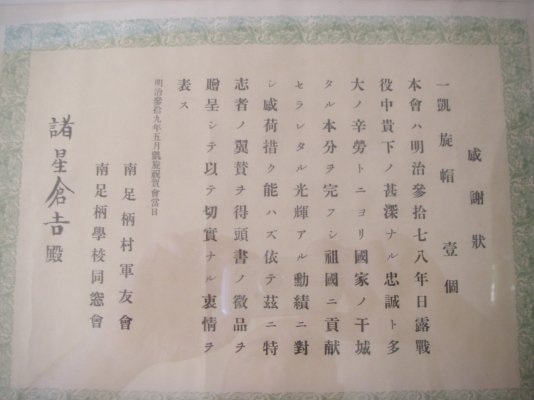 感謝狀
一凱旋帽 壹個
本會ハ明治參拾七八年日露戰
役中貴下ノ甚深ナル忠誠ト多
大ノ辛勞トニヨリ國家ノ干城
タル本分ヲ完フシ祖國ニ貢献
セラレタル光輝アル動績ニ對
シ感荷措ク能ハズ依テ茲ニ特
志者ノ翼贊ヲ得頭書ノ微品ヲ
贈呈シテ以テ切實ナル衷情ヲ
表ス
明治參拾九年五月凱旋祝賀會當日
南足柄村軍友會
南足柄學校同窓會
諸星倉吉殿